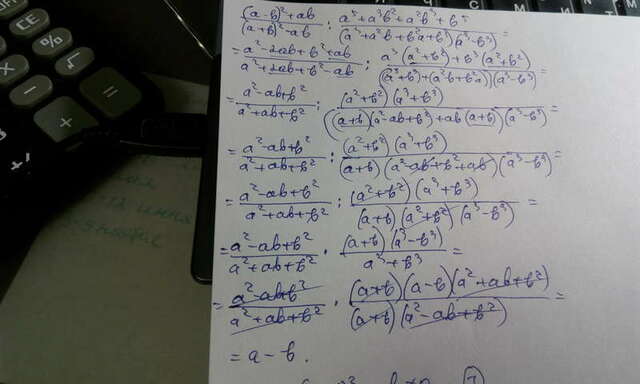 ((a-b)²+ab)/((a+b)²-ab) : (a⁵+a³b²+a²b³+b⁵)/((a³+a²b+b²a+b³)(a³-b³)) =
= (a²-2ab+b²+ab)/(a²+2ab+b²-ab) : (a³(a²+b²)+b³(a²+b²))/(((a³+b³)+(a²b+b²a))(a³-b³)) =
= (a²-ab+b²)/(a²+ab+b²) : ((a²+b²)(a³+b³))/(((a+b)(a²-ab+b²)+ab(a+b))(a³-b³)) =
= (a²-ab+b²)/(a²+ab+b²) : ((a²+b²)(a³+b³))/((a+b)(a²-ab+b²+ab)(a³-b³)) =
= (a²-ab+b²)/(a²+ab+b²) : ((a²+b²)(a³+b³))/((a+b)(a²+b²)(a³-b³)) =
= (a²-ab+b²)/(a²+ab+b²) · ((a+b)(a³-b³))/(a³+b³) =
= (a²-ab+b²)/(a²+ab+b²) · ((a+b)(a-b)(a²+ab+b²))/((a+b)(a²-ab+b²)) =
= a-b.